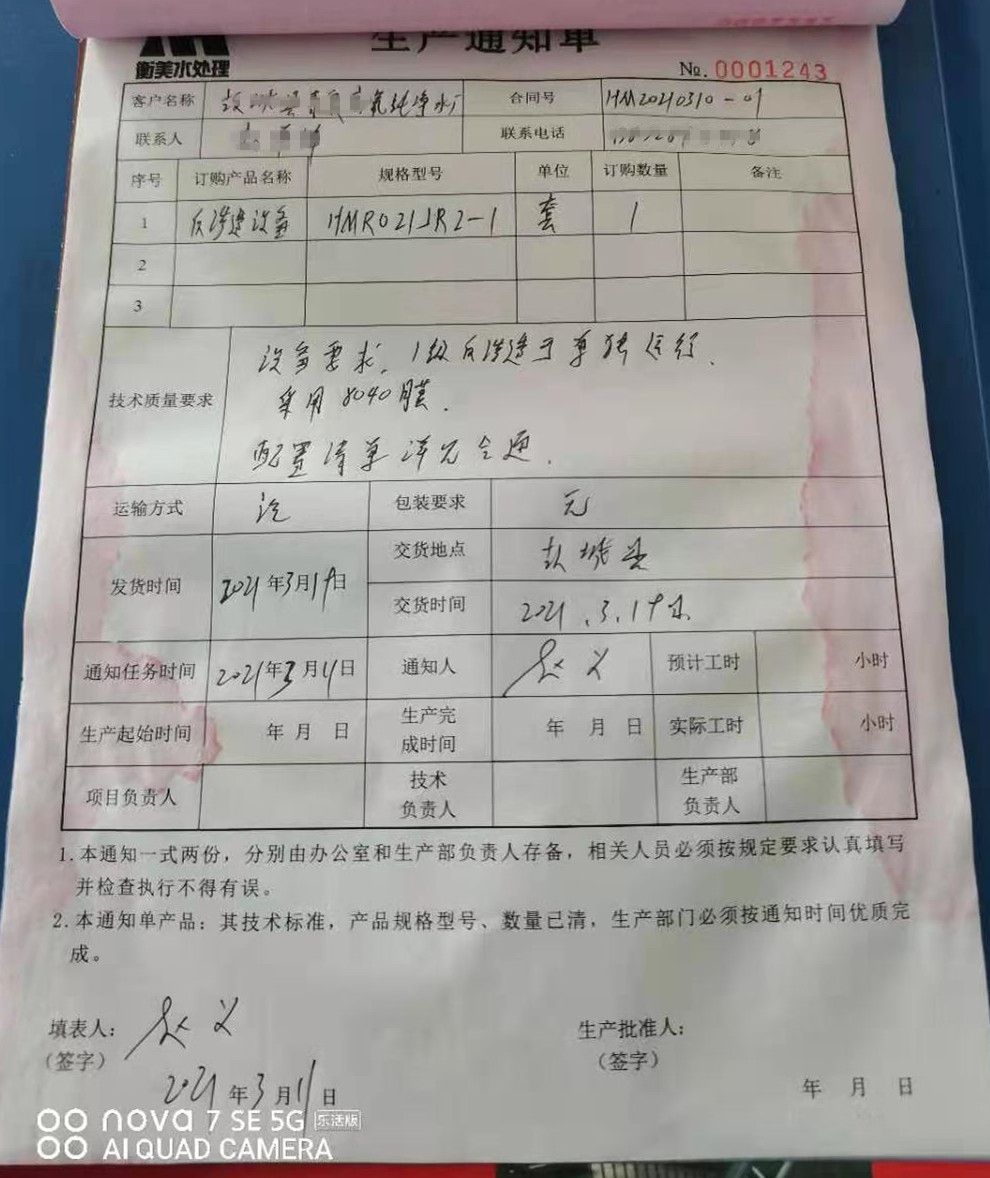 生产通知单
衡美水处理
No. 0001243
客户名称 氧纯净水厂 合同号 HM20210310-01
联系人 联系电话
序号 订购产品名称 规格型号 单位 订购数量 备注
1 反渗透设备 HMRO21JR2-1 套 1
2
3
技术质量要求 设备要求,1级反渗透可单独运行.
采用8040膜.
配置清单详见合通.
运输方式 汽 包装要求 无
发货时间 2021年3月19日 交货地点 城县
交货时间 2021.3.19日
通知任务时间 2021年3月11日 通知人 赵义 预计工时 小时
生产起始时间 年 月 日 生产完成时间 年 月 日 实际工时 小时
项目负责人 技术负责人 生产部负责人
1.本通知一式两份，分别由办公室和生产部负责人存备，相关人员必须按规定要求认真填写
并检查执行不得有误。
2.本通知单产品：其技术标准，产品规格型号、数量已清，生产部门必须按通知时间优质完
成。
填表人： 赵义 生产批准人：
（签字） （签字）
2021年3月11日 年 月 日
nova 7 SE 5G 乐活版
AI QUAD CAMERA